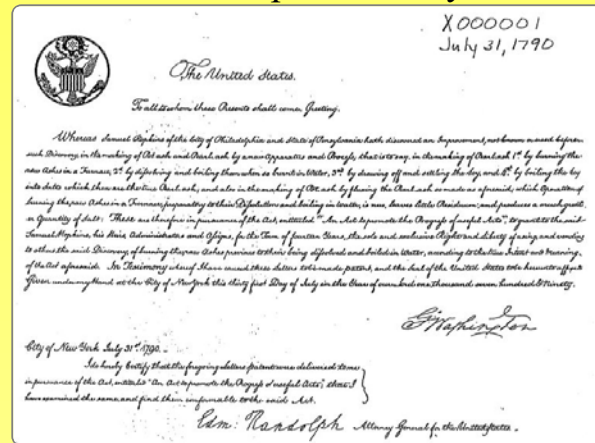 X000001
July 31, 1790
The United States.
To all to whom these Presents shall come, Greeting.
Whereas Samuel Hopkins of the City of Philadelphia and State of Pensylvania hath discovered an Improvement, not known or used before
such Discovery, in the making of Pot ash and Pearl ash by a new Apparatus and Process, that is to say, in the making of Pearl ash 1st by burning the
raw Ashes in a Furnace, 2d by dissolving and boiling them when so burnt in Water, 3d by drawing off and settling the Ley, and 4th by boiling the Ley
into Salts which then are the true Pearl ash; and also in the making of Pot ash by fluxing the Pearl ash so made as aforesaid; which Operation of
burning the raw Ashes in a Furnace, preparatory to their Dissolution and boiling in Water, is new, leaves little Residuum; and produces a much greater
Quantity of Salt: These are therefore in pursuance of the Act, entituled "An Act to promote the Progress of useful Arts", to grant to the said
Samuel Hopkins, his Heirs, Administrators and Assigns, for the Term of fourteen Years, the sole and exclusive Right and Liberty of using and vending
to others the said Discovery, of burning the raw Ashes previous to their being dissolved and boiled in Water, according to the true Intent and Meaning
of the Act aforesaid. In Testimony whereof I have caused these Letters to be made patent, and the Seal of the United States to be hereunto affixed
Given under my Hand at the City of New York this thirty first Day of July in the Year of our Lord one thousand seven hundred & Ninety.
G Washington
City of New York July 31st 1790.
I do hereby Certify that the foregoing Letters patent were delivered to me
in pursuance of the Act, entituled "An Act to promote the Progress of useful Arts"; that I
have examined the same, and find them conformable to the said Act.
Edm: Randolph Attorney General for the United States.